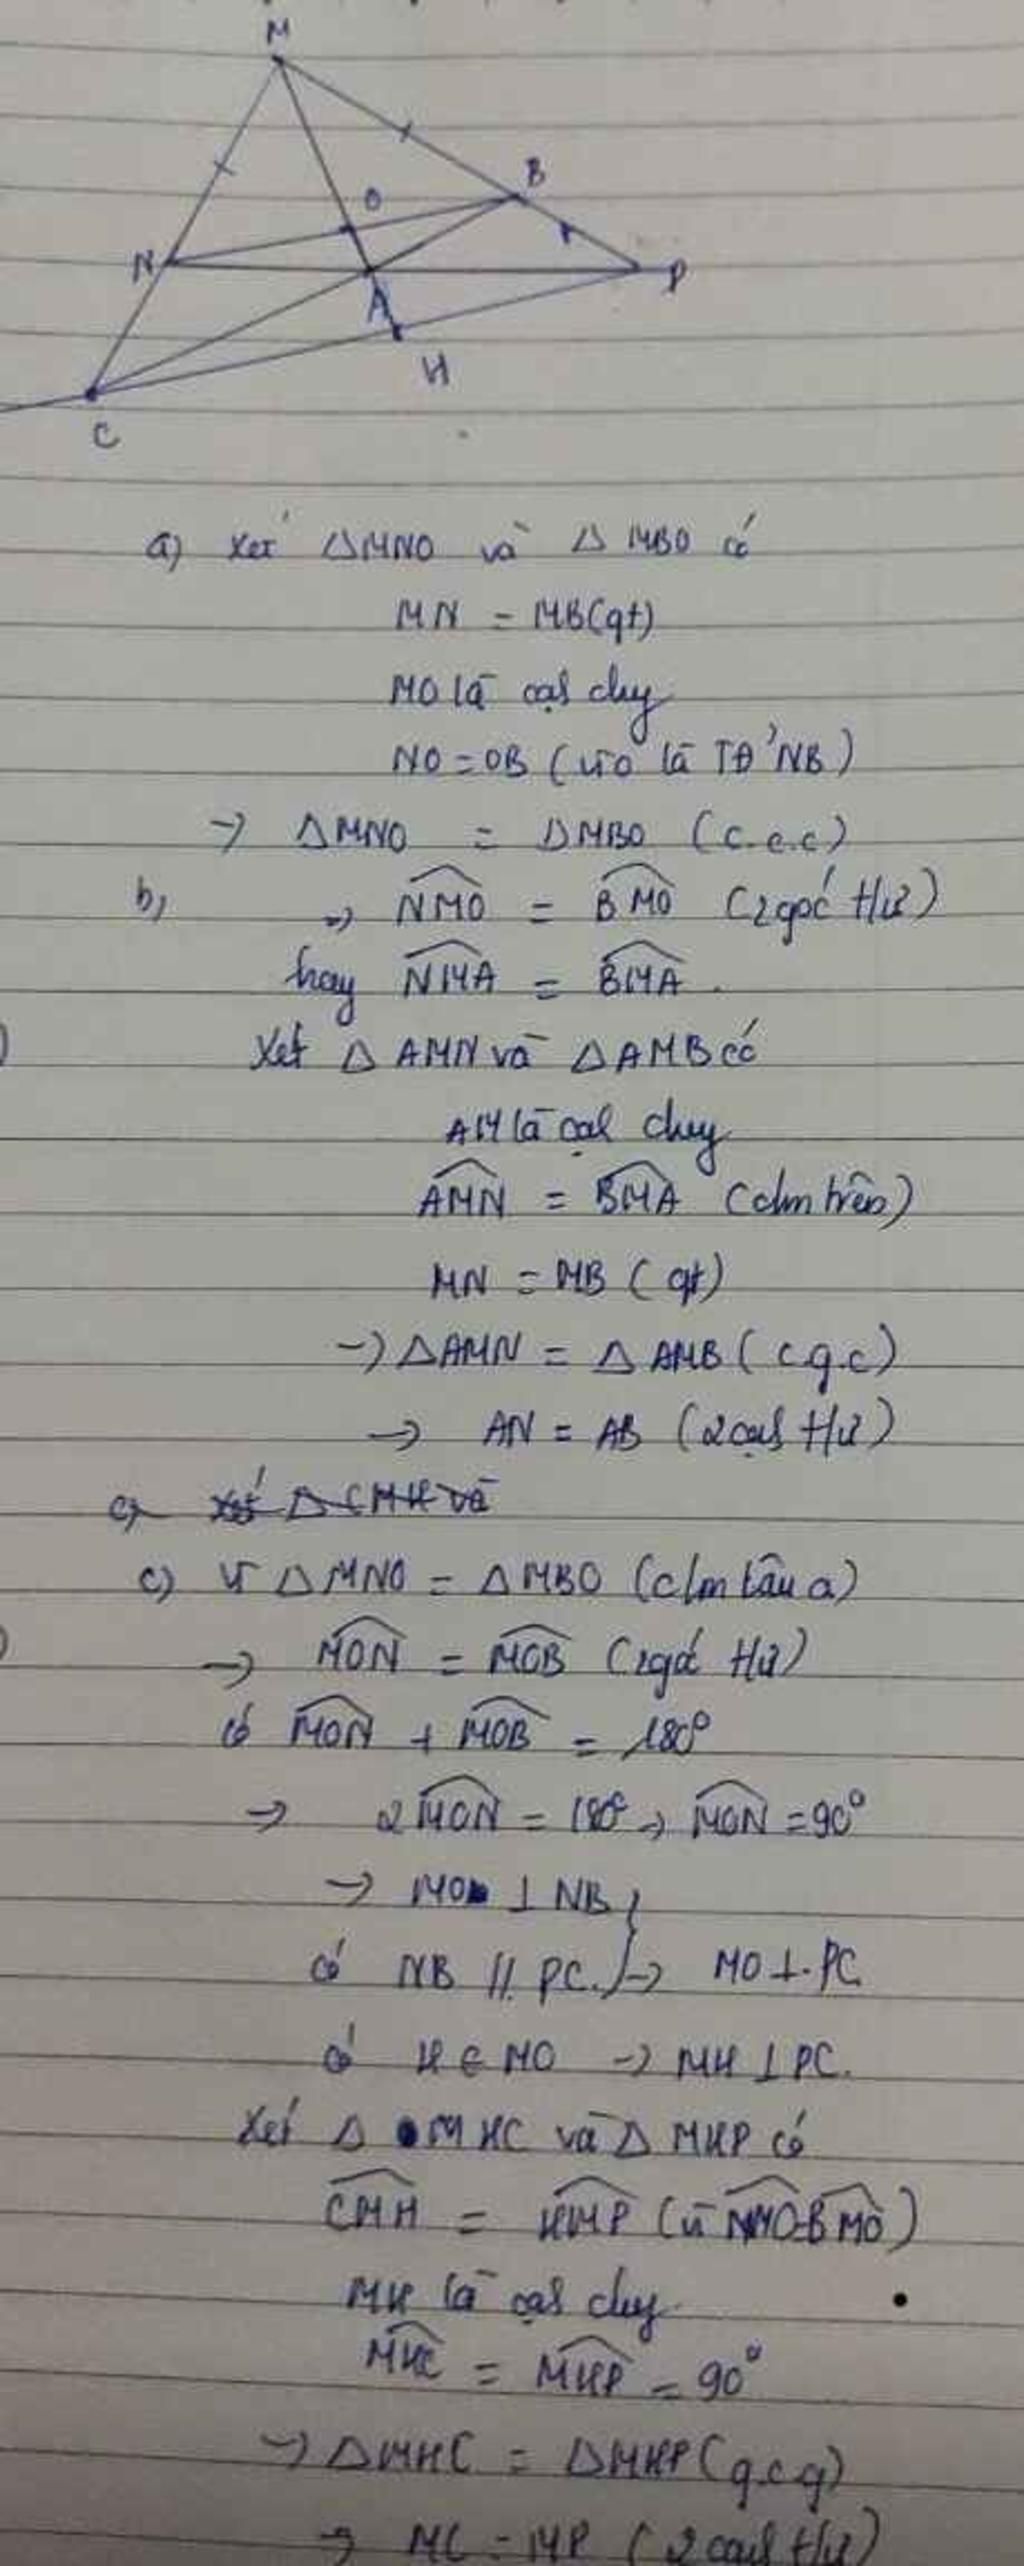 M
B
O
N
P
A
H
C
a) Xét ΔMNO và Δ MBO có
MN = MB(gt)
MO là cạh chug
NO = OB (vì O là TĐ' NB)
-> ΔMNO = ΔMBO (c.c.c)
b, => NMO = BMO (2 góc Hư')
hay NMA = BMA.
Xét Δ AMN và ΔAMB có
AM là cạh chug
AMN = BMA (clm trên)
MN = MB (gt)
-> ΔAMN = Δ AMB (c.g.c)
-> AN = AB (2 cạh Hư')
c, Xét Δ CMH và
c) Vì ΔMNO = ΔMBO (clm câu a)
-> MON = MOB (2 góc Hư')
có MON + MOB = 180°
-> 2MON = 180° -> MON = 90°
-> MO ⊥ NB }
có NB // PC. } -> MO ⊥ PC
có H ∈ MO -> MH ⊥ PC.
Xét Δ MHC và Δ MHP có
CMH = HMP (vì NMO=BMO)
MH là cạh chug
MHC = MHP = 90°
-> ΔMHC = ΔMHP (g.c.g)
-> MC = MP (2 cạh Hư')